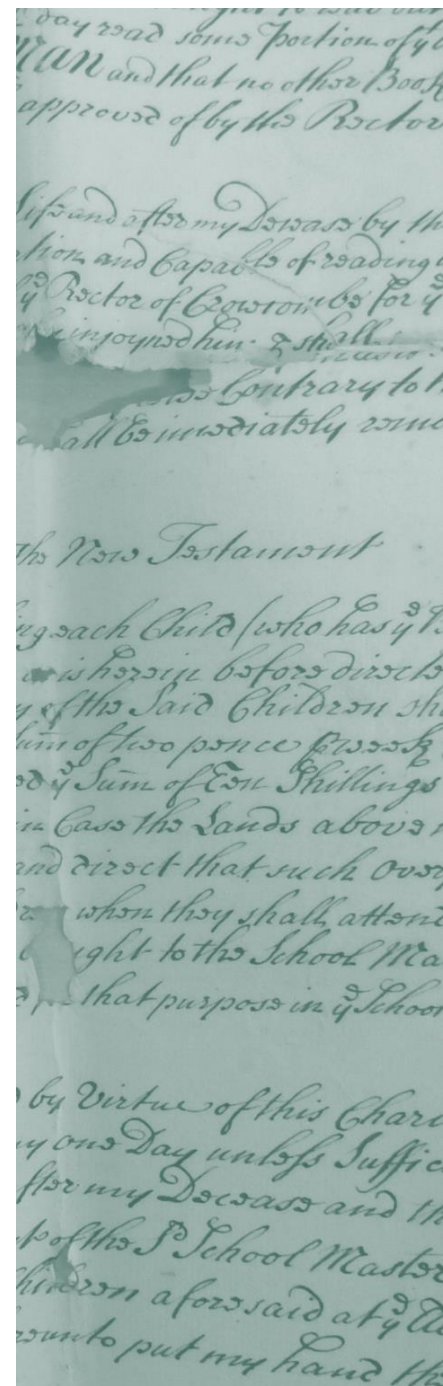 day read some Portion of ye
MAN and that no other Book
approved of by the Rector
Life and after my Decease by th
tion and Capable of reading a
ye Rector of Crowcombe for ye
injoyned him & shall
Contrary to t
all be imediately remo
the New Testament
ing each Child (who has ye
is herein before directe
of the Said Children sha
Sum̄ of two pence p week
ed ye Sum̄ of Ten Shillings
in Case the Lands above
and direct that such Over
when they shall attend
ght to the School Ma
that purpose in ye School
by Virtue of this Chari
ny one Day unless Suffic
fter my Decease and th
of the Sd School Master
hildren aforesaid at ye
reunto put my hand the